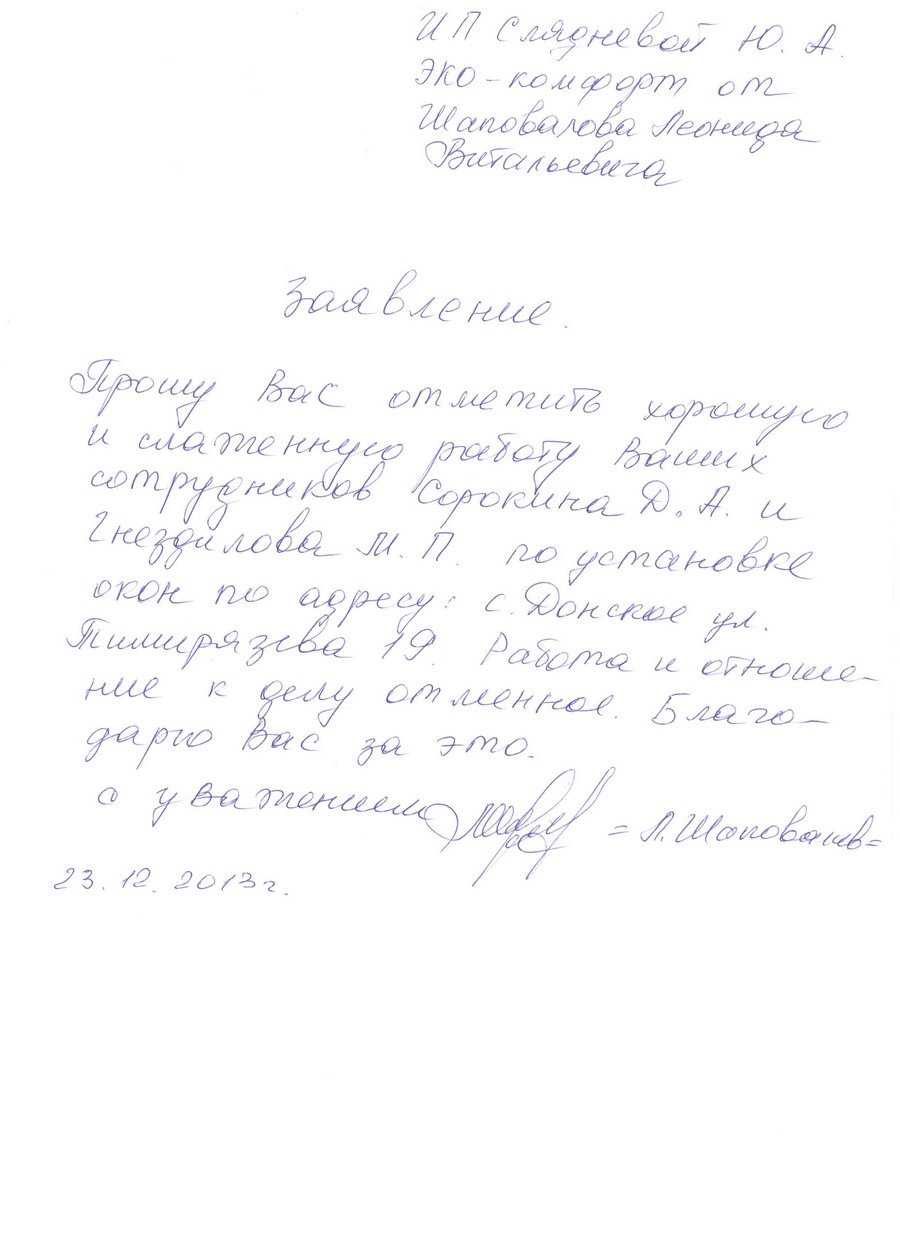 ИП Слядневой Ю. А.
Эко-комфорт от
Шаповалова Леонида
Витальевича
Заявление.
Прошу Вас отметить хорошую
и слаженную работу Ваших
сотрудников Сорокина Д. А. и
Гнездилова М. П. по установке
окон по адресу: с. Донское ул.
Тимирязева 19. Работа и отноше-
ние к делу отменное. Благо-
дарю Вас за это.
с уважением = Л. Шаповалов =
23. 12. 2013г.